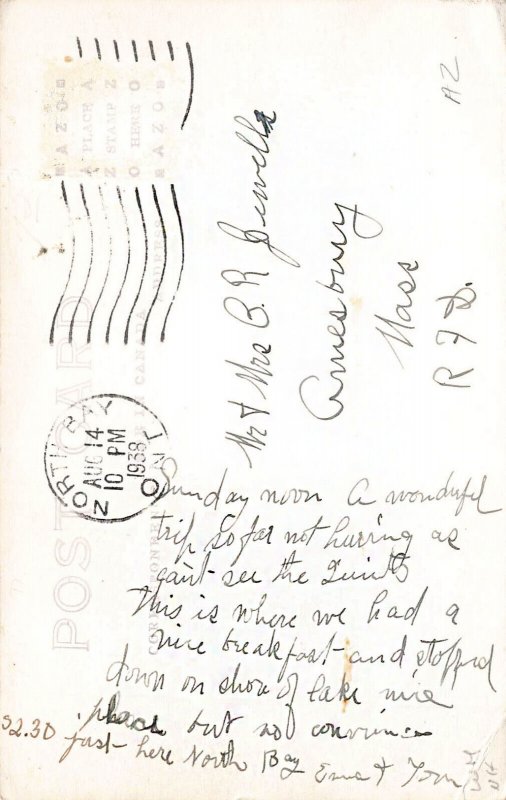 AZOS
A PLACE A
Z STAMP Z
O HERE O
AZOS
POST CARD
NORTH BAY
AUG 14
10 PM
1938
ONT
AZ
Mr & Mrs C. R. Jewell
Amesbury
Mass
R F D.
Sunday noon A wonderful
trip so far not hurring as
can't see the Quints
This is where we had a
nice breakfast and stopped
down on shore of lake nice
place but not convin-
fast here North Bay
32.30